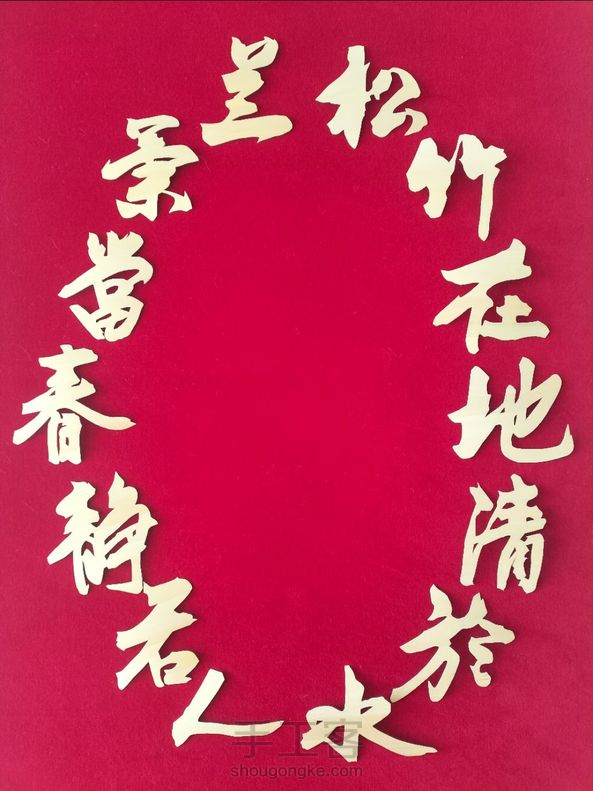 松竹在地清於水
兰葉當春静若人
手工客
shougongke.com